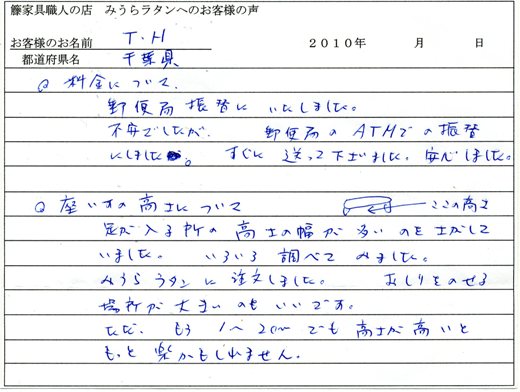 籐家具職人の店 みうらラタンへのお客様の声
お客様のお名前 T.H 2010年 月 日
都道府県名 千葉県
料金について。
郵便局振替に いたしました。
不安でしたが、 郵便局のATMでの振替
にしました。 すぐに 送って下さいました。安心しました。
座いすの高さについて ここの高さ
足が入る所の 高さの幅が 多いのを さがして
いました。 いろいろ 調べて みました。
みうらラタンに 注文しました。 おしりをのせる
場所が 大きいのも いいです。
ただ、もう 1〜2cmでも 高さが高いと
もっと 楽かもしれません。